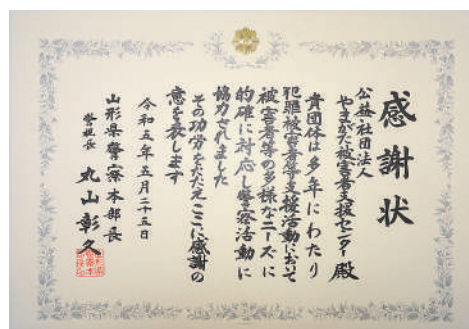 感謝状
公益社団法人
やまがた被害者支援センター殿
貴団体は多年にわたり
犯罪被害者等支援活動において
被害者等の多様なニーズに
的確に対応し警察活動に
協力されました
その功労をたたえここに感謝の
意を表します
令和五年五月二十五日
山形県警察本部長
警視長 丸山彰久